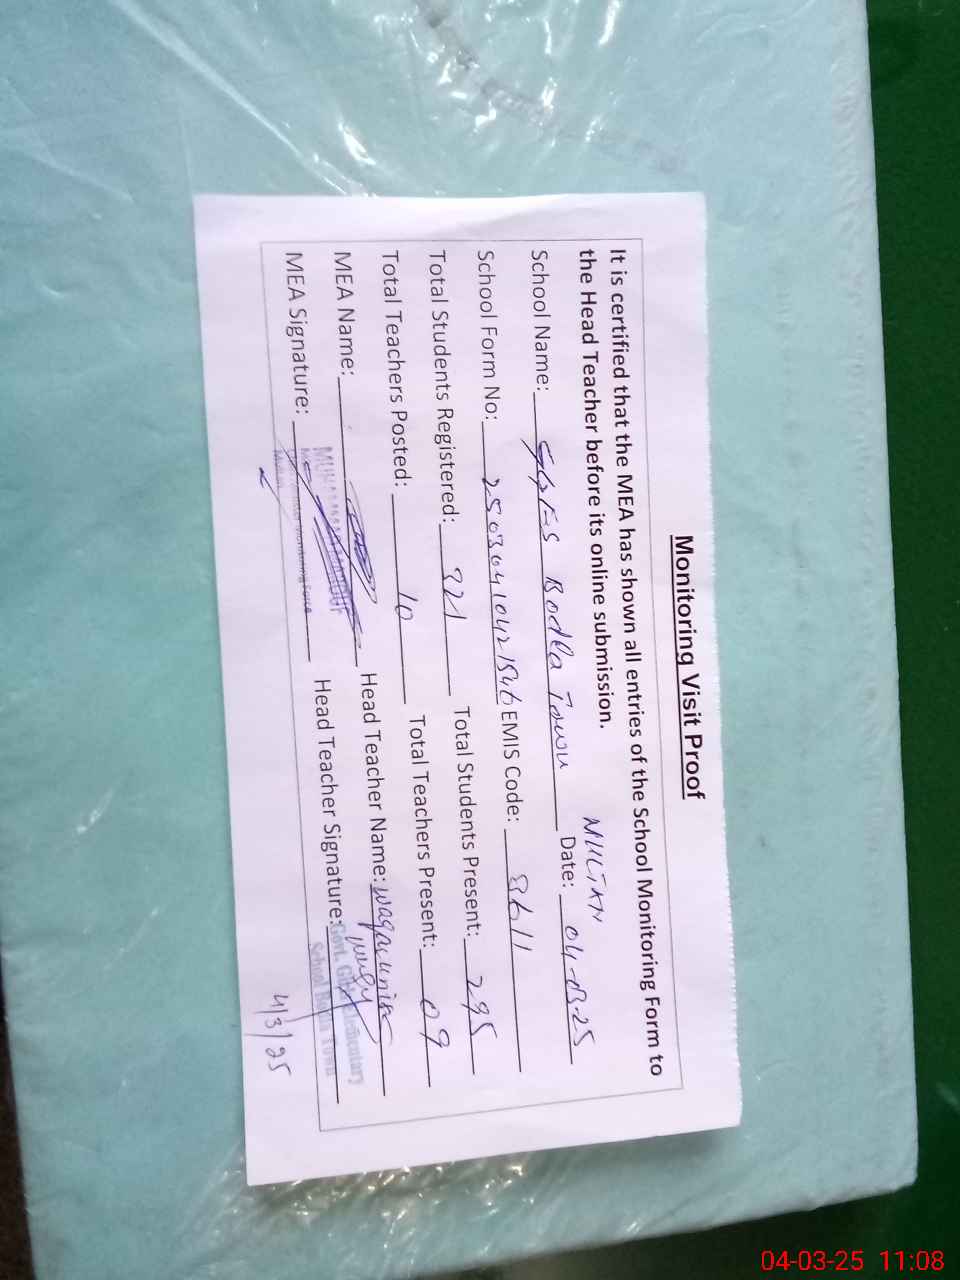 Monitoring Visit Proof
It is certified that the MEA has shown all entries of the School Monitoring Form to
the Head Teacher before its online submission.
MULTAN
School Name: GGES Bodla Town Date: 04-03-25
School Form No: 25030410421846 EMIS Code: 8611
Total Students Registered: 321 Total Students Present: 295
Total Teachers Posted: 10 Total Teachers Present: 09
MEA Name: Head Teacher Name:
MEA Signature: Head Teacher Signature:
Monitoring Force
Govt. Elementary
School Bodla Town
4/3/25
04-03-25 11:08